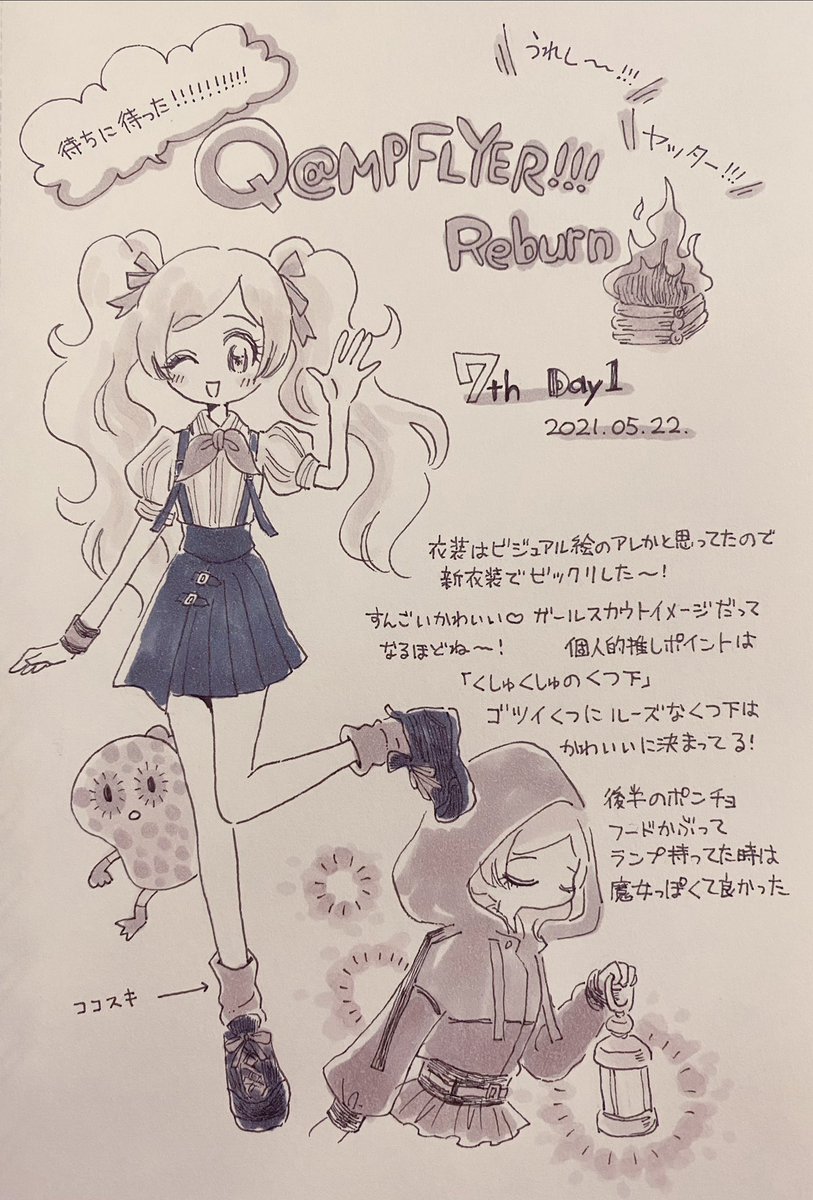 待ちに待った!!!!!!!!!!
うれし〜〜!!!
ヤッター!!!
Q@MPFLYER!!!
Reburn
7th Day1
2021.05.22.
衣装はビジュアル絵のアレかと思ってたので
新衣装でビックリした〜!
すんごいかわいい♡ ガールスカウトイメージだって
なるほどね〜! 個人的推しポイントは
「くしゅくしゅのくつ下」
ゴツイくつにルーズなくつ下は
かわいいに決まってる!
後半のポンチョ
フードかぶって
ランプ持ってた時は
魔女っぽくて良かった
ココスキ